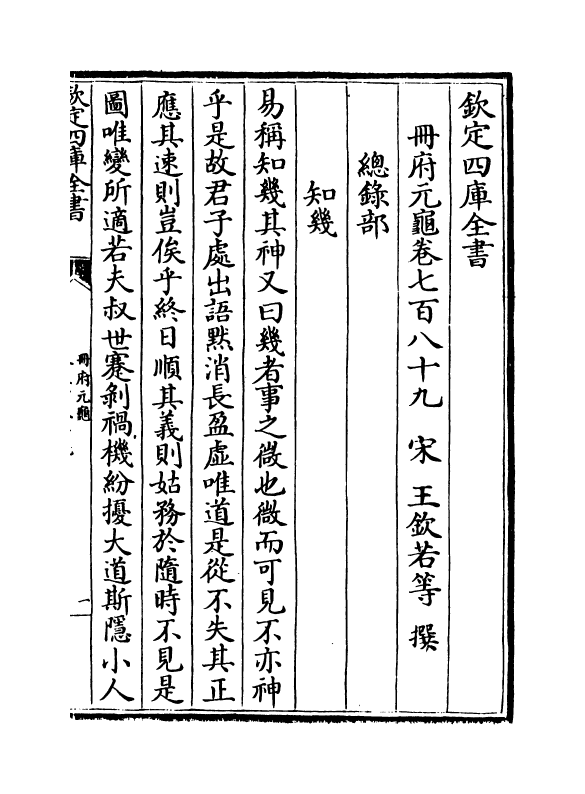 欽定四庫全書
冊府元龜卷七百八十九　宋　王欽若等　撰
總錄部
知幾
易稱知幾其神又曰幾者事之微也微而可見不亦神
乎是故君子處出語默消長盈虛唯道是從不失其正
應其速則豈俟乎終日順其義則姑務於隨時不見是
圖唯變所適若夫叔世蹇剝禍機紛擾大道斯隱小人
欽定四庫全書
冊府元龜
一